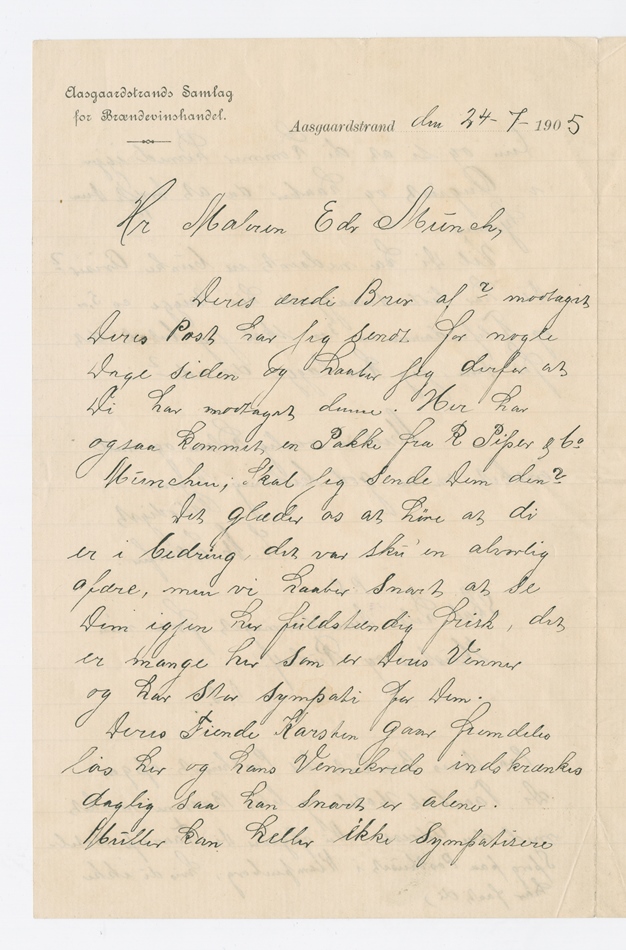 Aasgaardstrands Samlag
for Brændevinshandel.
Aasgaardstrand den 24-7-1905
Hr Maleren Edv Münch,
Deres ærede Brev af modtaget
Deres Post har jeg sendt for nogle
Dage siden og haaber jeg derfor at
Di har modtaget denne. Her har
ogsaa kommet en Pakke fra R Piper & Co
München; Skal jeg sende Dem den?
Det glæder os at höre at di
er i bedring, det var sku' en alvorlig
afære, men vi haaber snart at se
Dem igjen her fuldstændig frisk, det
er mange her som er Deres Venner
og har stor sympati for Dem.
Deres Fiende Karsten gaar fremdeles
løs her og hans Vennekreds indskrænkes
daglig saa han snart er alene.
Müller kan heller ikke sympatisere